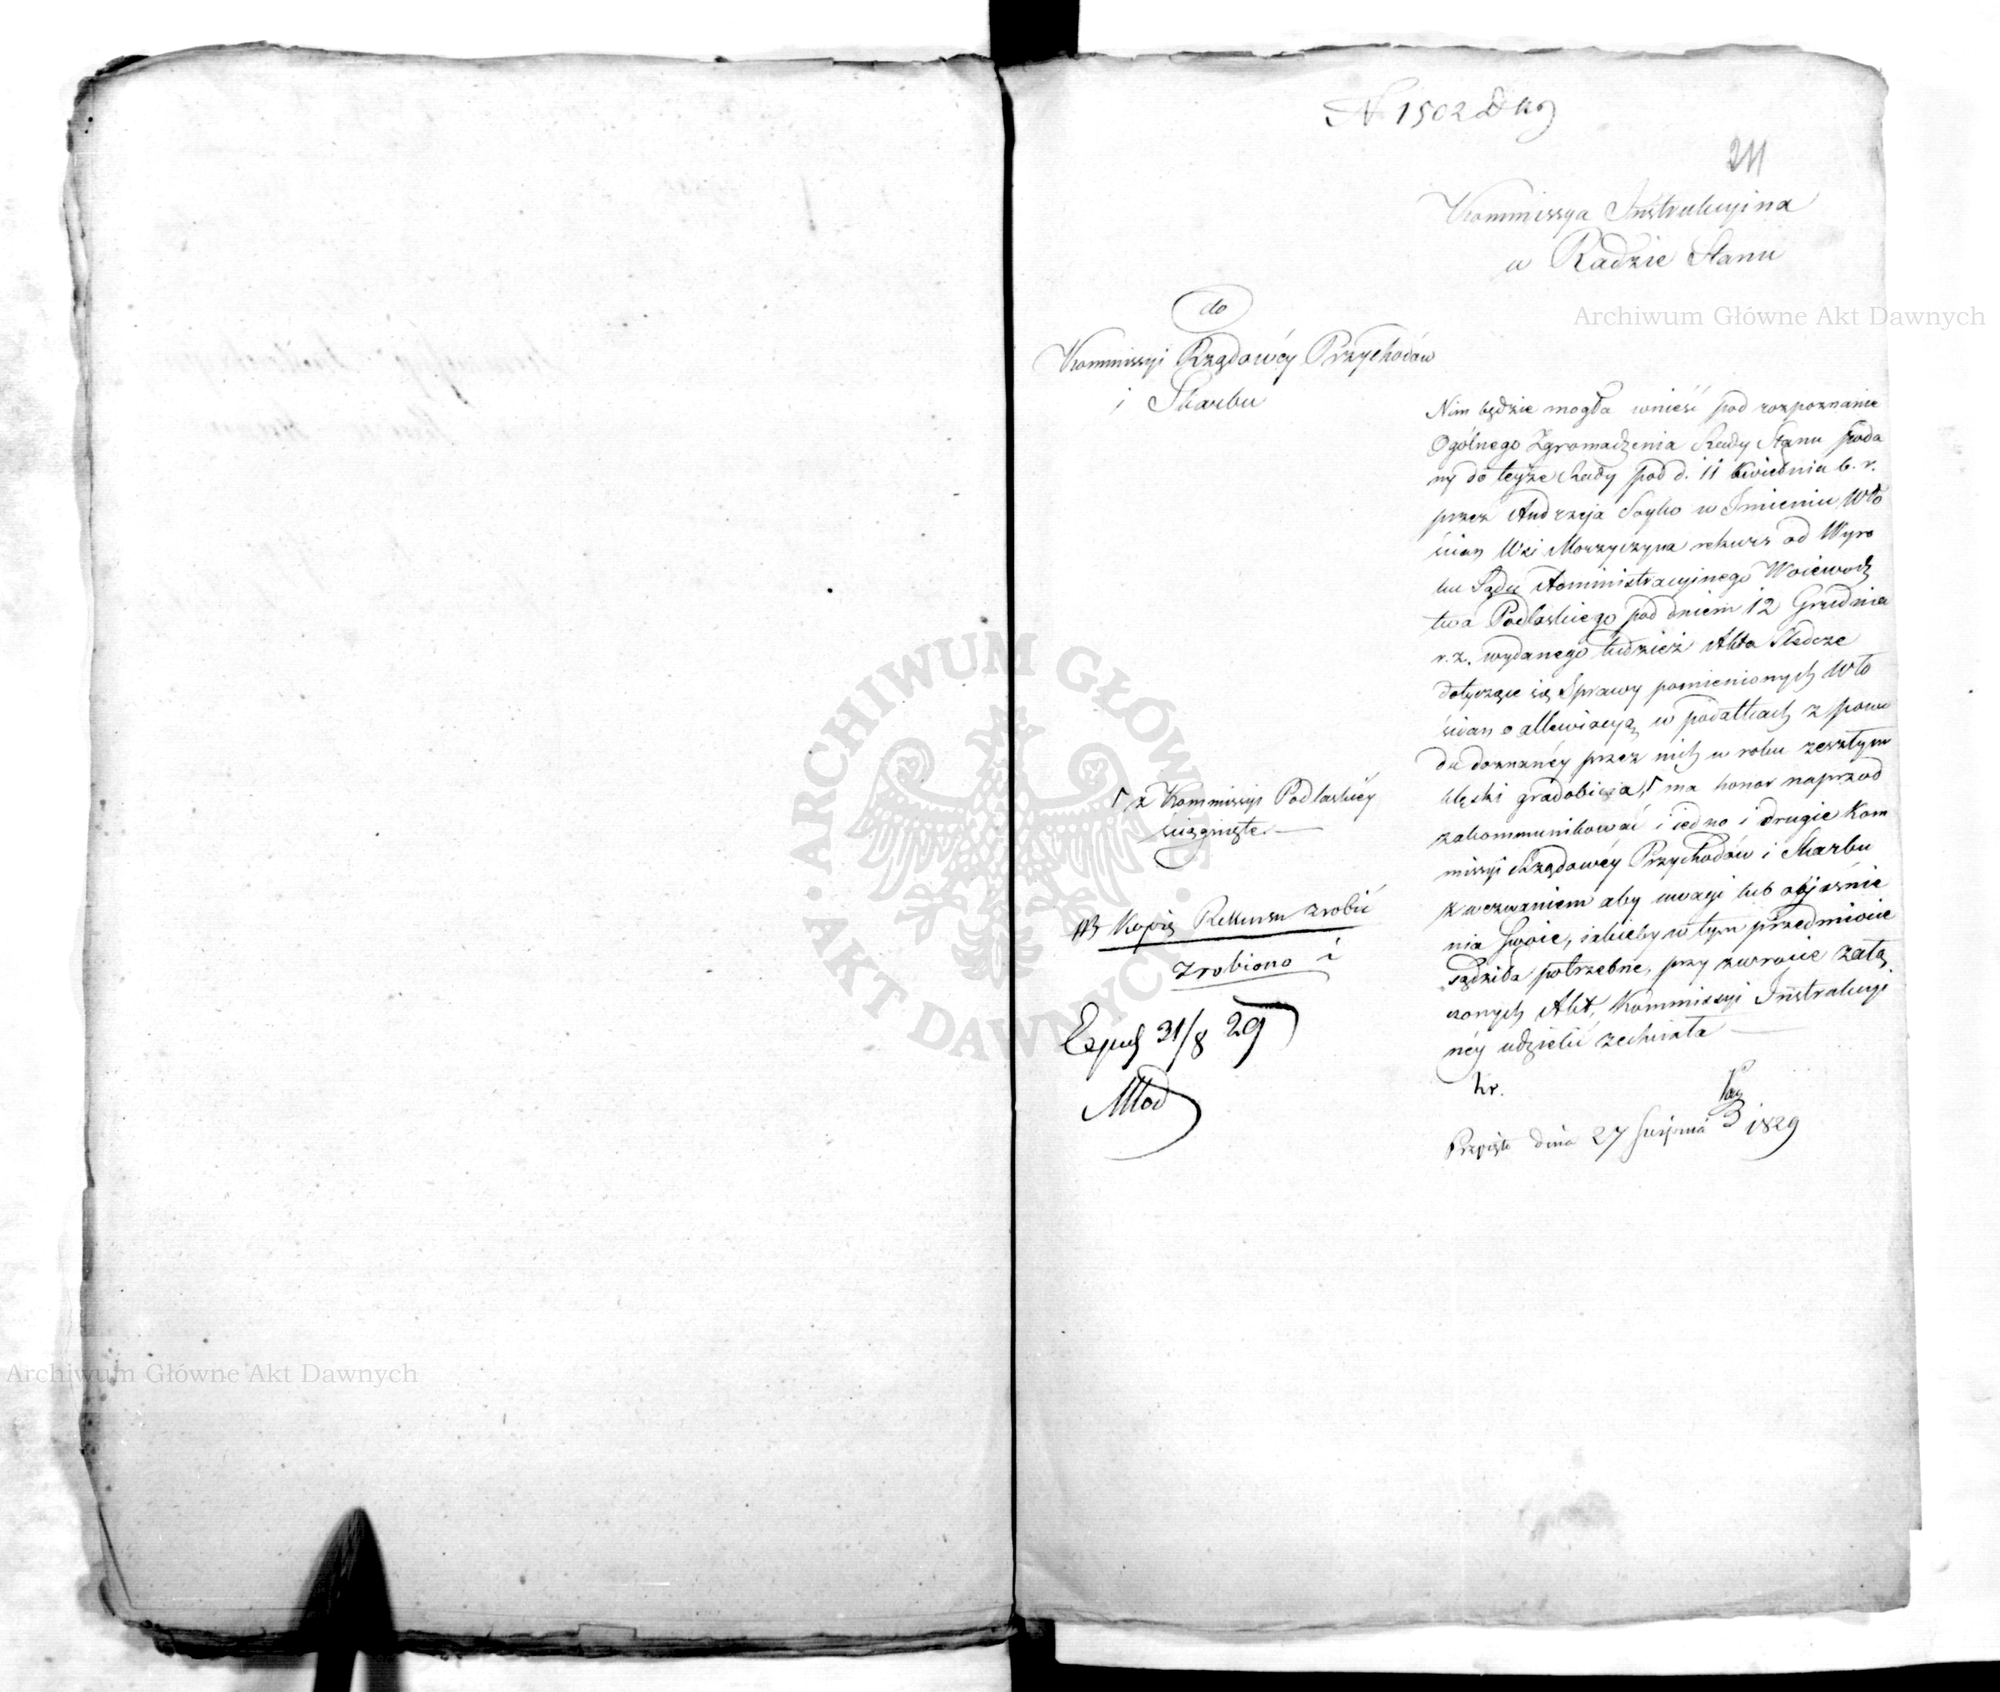 N 1502
211
Kommissya Instrukcyina
w Radzie Stanu
do
Kommissyi Rządowéy Przychodów
i Skarbu
Nim będzie mogła wnieść pod rozpoznanie
Ogólnego Zgromadzenia Rady Stanu poda
ny do teyże Rady pod d. 11 Kwietnia b. r.
przez Andrzeja Soyko w Imieniu Wło
ścian Wsi Morzyczyna rekurs od Wyro
ku Sądu Administracyinego Woiewodz
twa Podlaskiego pod dniem 12 Grudnia
r. z. wydanego tudzież Akta Śledcze
dotyczące się Sprawy pomienionych Wło
ścian o allewiacyą w podatkach z powo
du doznanéy przez nich w roku zeszłym
klęski gradobicia, Γ ma honor naprzod
zakommunikować i iedno i drugie Kom
missyi Rządowéy Przychodów i Skarbu
z wezwaniem aby uwagi lub obiaśnie
nia Swoie, iakieby w tym przedmiocie
sądziła potrzebne, przy zwrocie załą
czonych Akt, Kommissyi Instrukcyi
néy udzielić zechciała
Γ z Kommissyi Podlaskiéy
ściągnięte
NB Kopią Rekursu zrobić
zrobiono
Exped 31/8 29
Młod
Przyięto dnia 27 Sierpnia 1829
Archiwum Główne Akt Dawnych
ARCHIWUM GŁÓWNE AKT DAWNYCH
Archiwum Główne Akt Dawnych